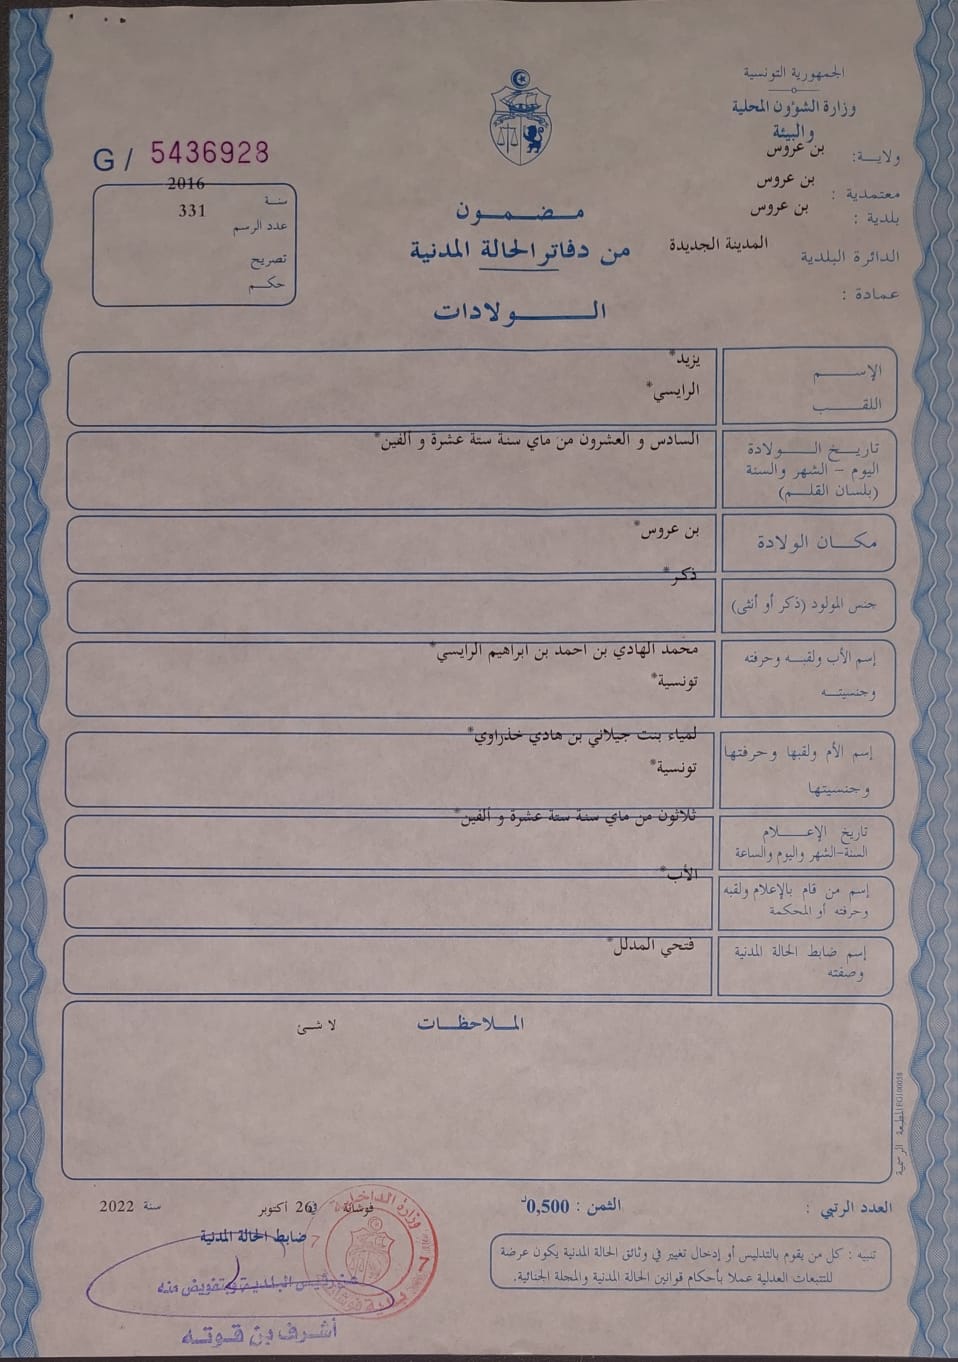 الجمهورية التونسية
وزارة الشؤون المحلية
والبيئة
ولاية: بن عروس
معتمدية : بن عروس
بلدية : بن عروس
الدائرة البلدية المدينة الجديدة
عمادة :
G / 5436928
سنة 2016
عدد الرسم 331
تصريح
حكم
مضمون
من دفاتر الحالة المدنية
الولادات
الإسم يزيد*
اللقب الرايسي*
تاريخ الولادة
اليوم - الشهر والسنة
(بلسان القلم)
السادس و العشرون من ماي سنة ستة عشرة و ألفين*
مكان الولادة بن عروس*
جنس المولود (ذكر أو أنثى) ذكر*
إسم الأب ولقبه وحرفته
وجنسيته
محمد الهادي بن احمد بن ابراهيم الرايسي*
تونسية*
إسم الأم ولقبها وحرفتها
وجنسيتها
لمياء بنت جيلاني بن هادي خذراوي*
تونسية*
تاريخ الإعلام
السنة-الشهر واليوم والساعة
ثلاثون من ماي سنة ستة عشرة و ألفين*
إسم من قام بالإعلام ولقبه
وحرفته أو المحكمة
الأب*
إسم ضابط الحالة المدنية
وصفته
فتحي المدلل*
الملاحظات
لا شئ
المطبعة الرسمية
العدد الرتبي :
الثمن : 0,500د
فوشانة في 26 أكتوبر سنة 2022
تنبيه : كل من يقوم بالتدليس أو إدخال تغيير في وثائق الحالة المدنية يكون عرضة
للتتبعات العدلية عملا بأحكام قوانين الحالة المدنية والمجلة الجنائية.
ضابط الحالة المدنية
عن رئيس البلدية وبتفويض منه
أشرف بن قوته
وزارة الداخلية
7
7